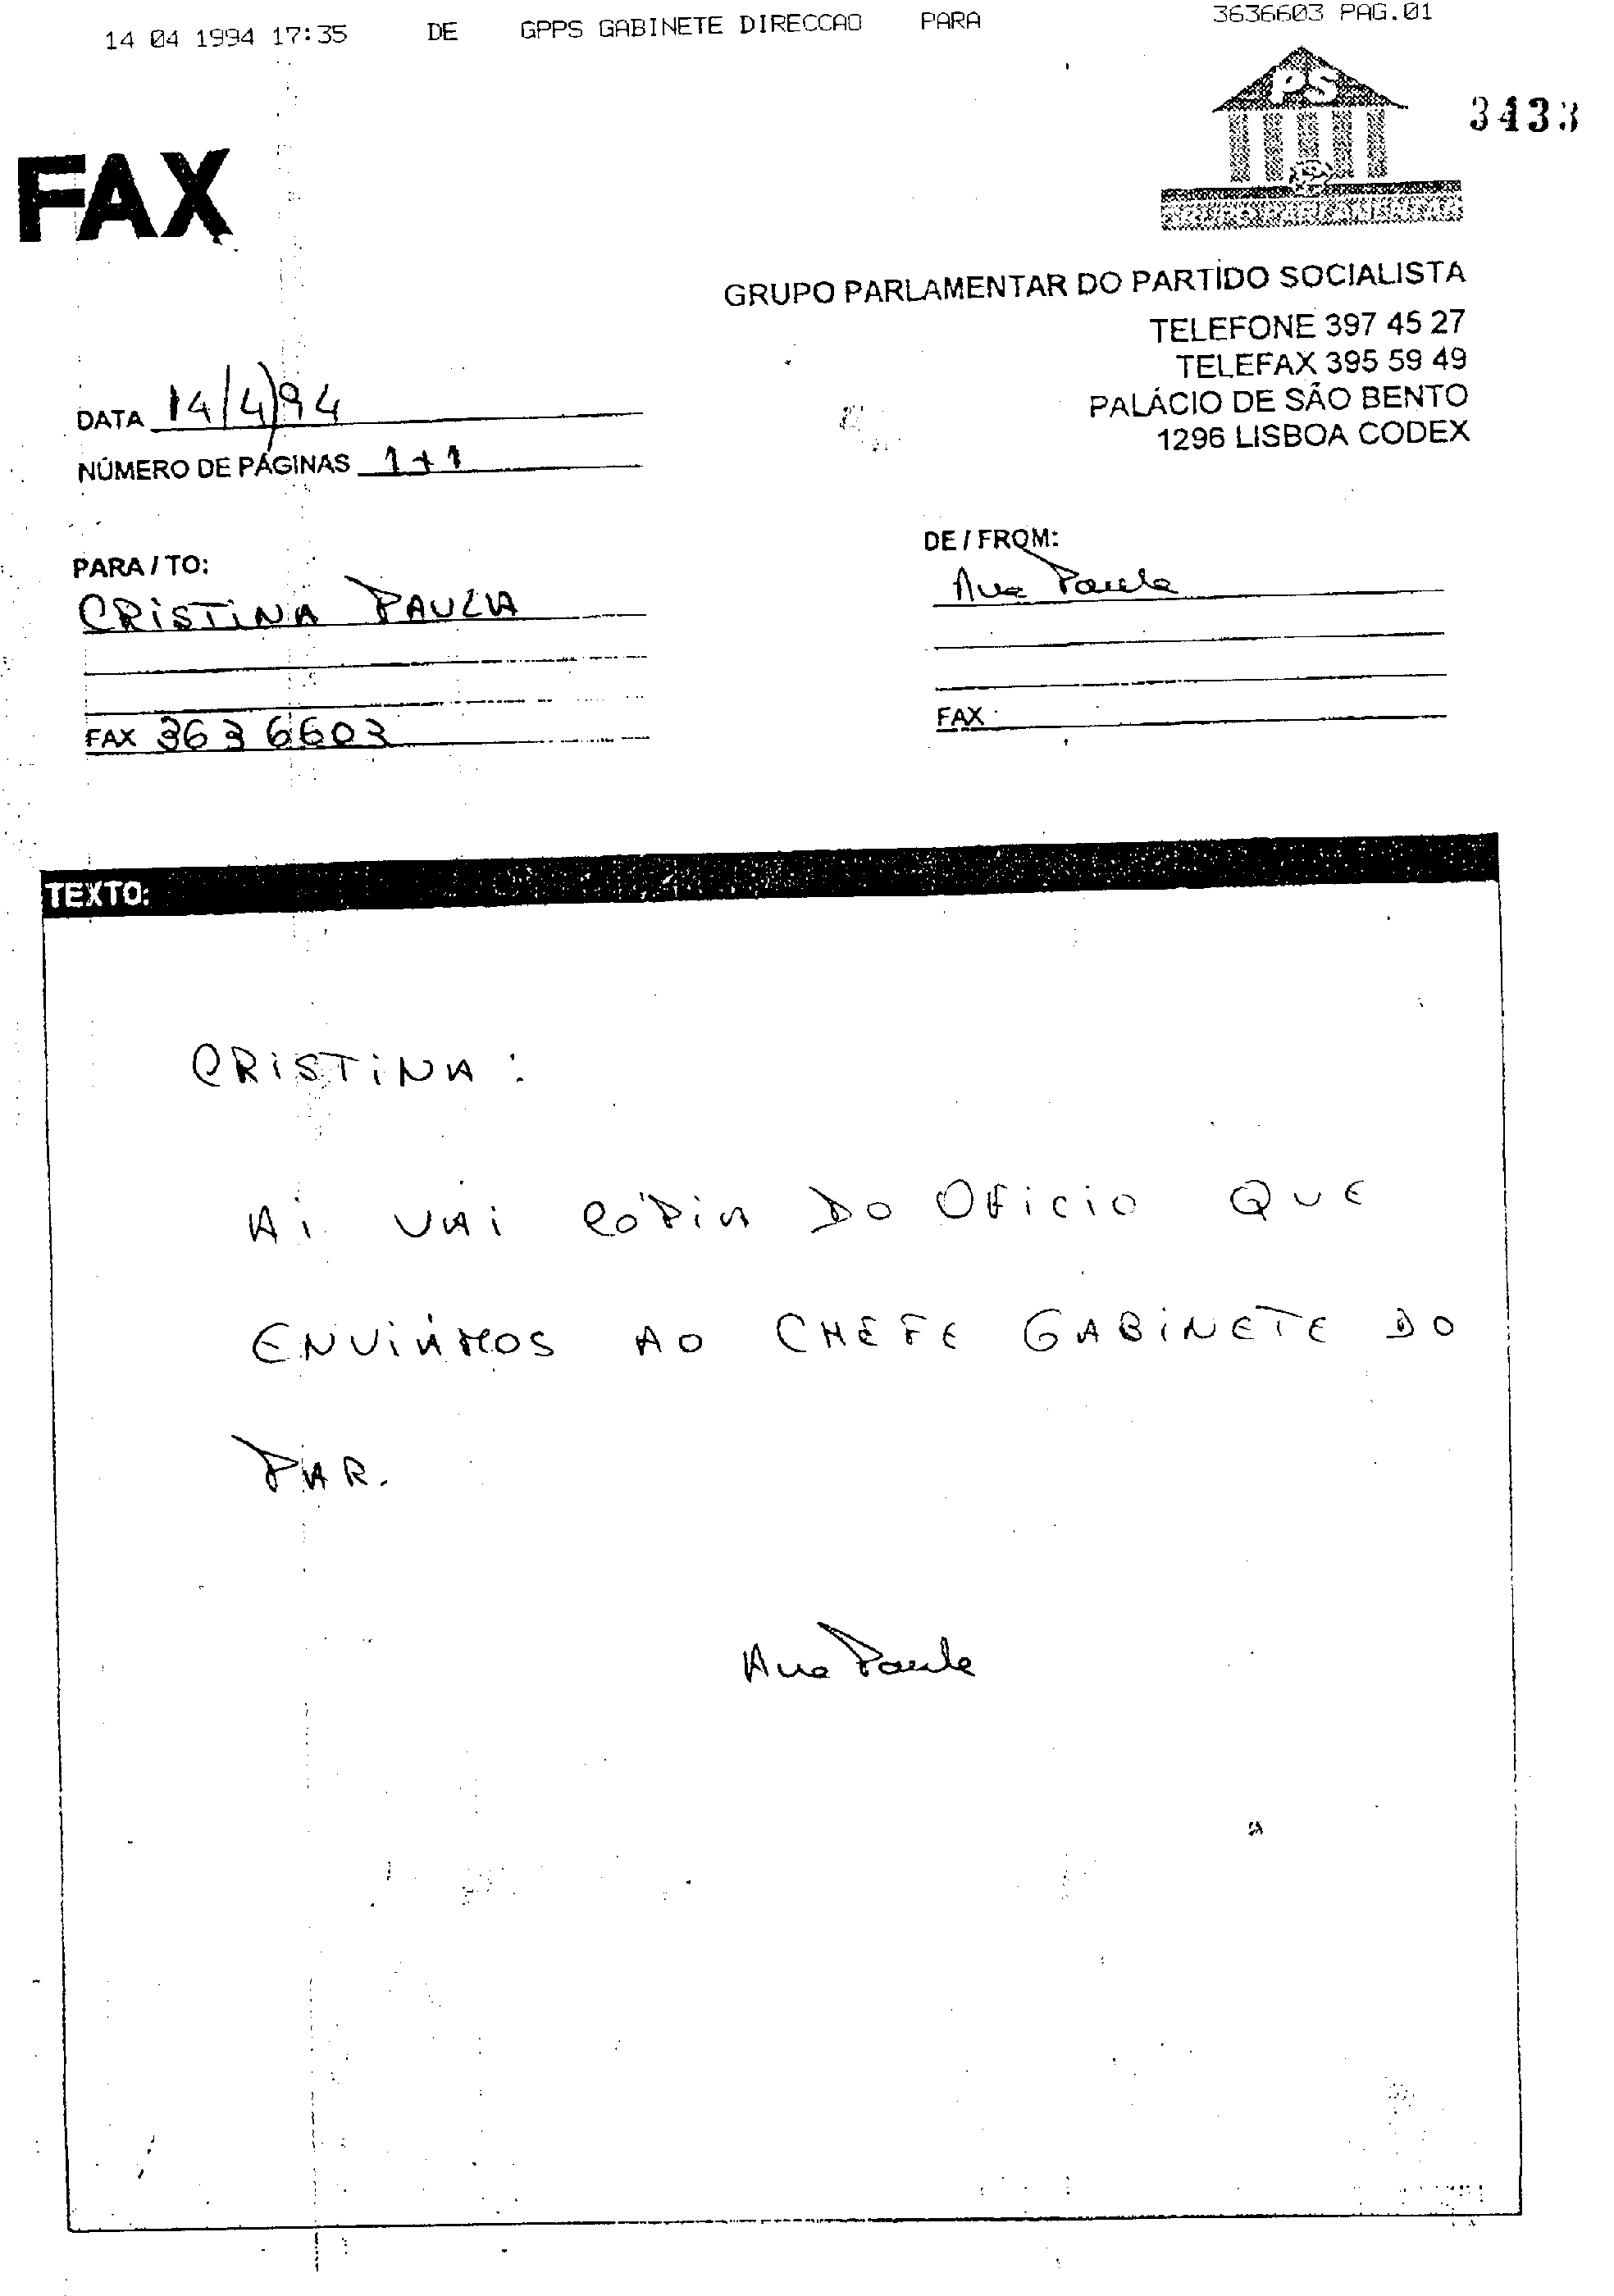 14 04 1994 17:35 DE GPPS GABINETE DIRECCAO PARA 3636603 PAG.01
PS
3433
FAX
GRUPO PARLAMENTAR
GRUPO PARLAMENTAR DO PARTIDO SOCIALISTA
TELEFONE 397 45 27
TELEFAX 395 59 49
PALÁCIO DE SÃO BENTO
1296 LISBOA CODEX
DATA 14/4/94
NÚMERO DE PÁGINAS 1+1
PARA / TO:
CRISTINA PAULA
FAX 363 6603
DE / FROM:
Ana Paula
FAX
TEXTO:
CRISTINA:
AÍ VAI CÓPIA DO OFICIO QUE
ENVIÁMOS AO CHEFE GABINETE DO
PAR.
Ana Paula